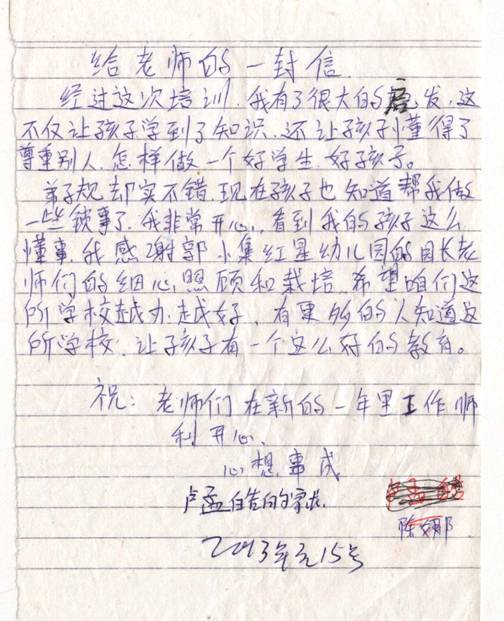 给老师的一封信
经过这次培训，我有了很大的启发，这
不仅让孩子学到了知识，还让孩子懂得了
尊重别人，怎样做一个好学生，好孩子。
弟子规却实不错，现在孩子也知道帮我做
一些锁事了，我非常开心，看到我的孩子这么
懂事，我感谢郭小集红星幼儿园的园长老
师们的细心照顾和栽培，希望咱们这
所学校越办越好，有更多的人知道这
所学校，让孩子有一个这么好的教育。
祝：老师们在新的一年里工作顺
利开心，
心想事成
卢孟皓的家长
陈娜
2013年元15号